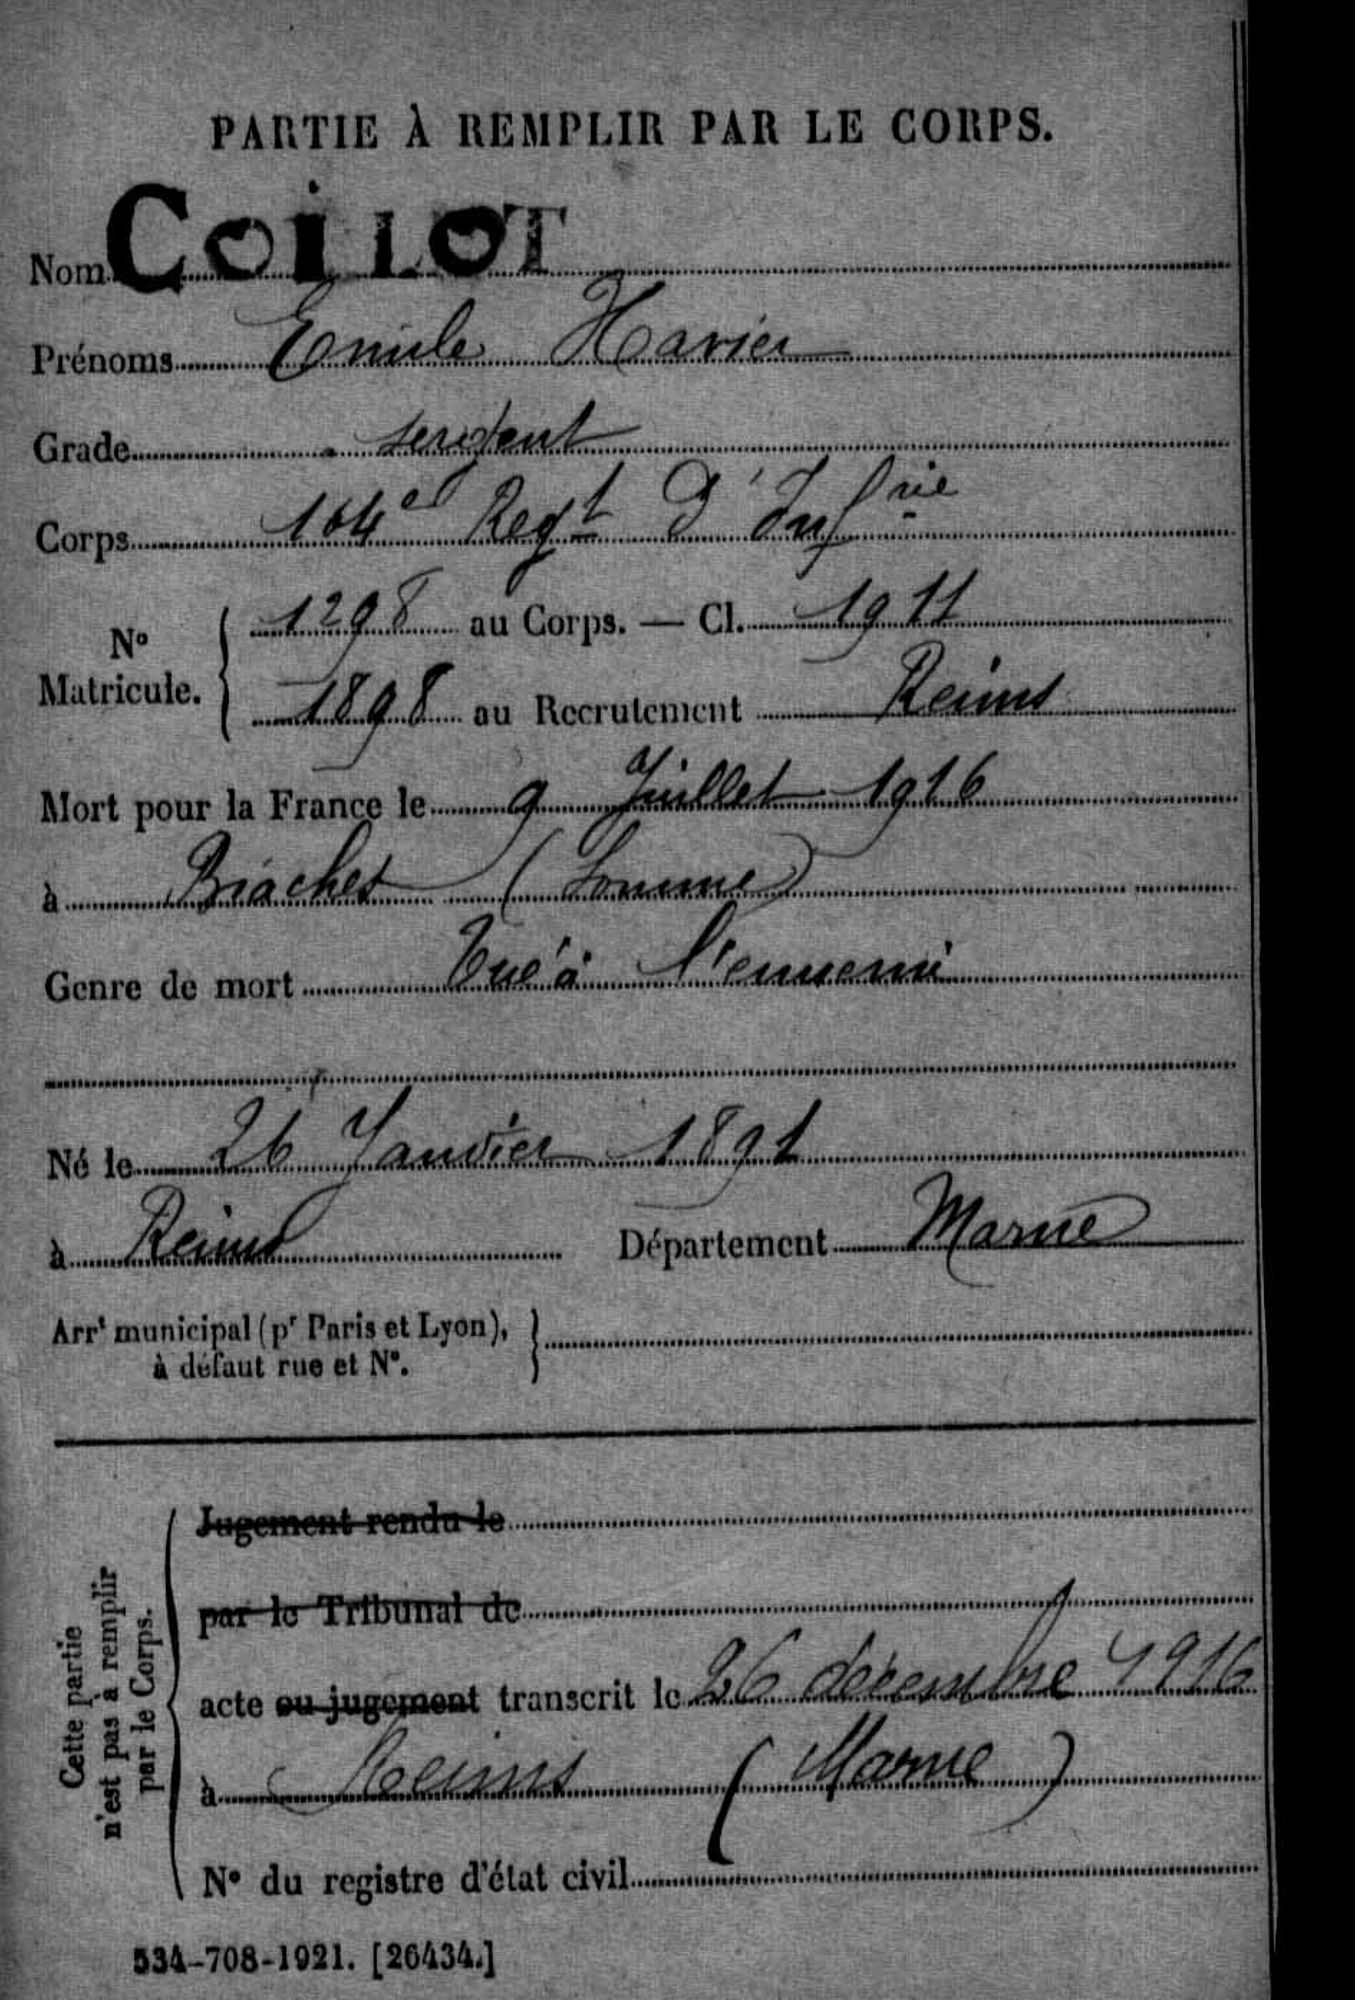 PARTIE À REMPLIR PAR LE CORPS.
Nom COiLOT
Prénoms Emile Xavier
Grade sergent
Corps 164e Regt d'Infrie
No Matricule. 1298 au Corps. — Cl. 1911
1898 au Recrutement Reims
Mort pour la France le 9 Juillet 1916
à Biaches (Somme)
Genre de mort Tué à l'ennemi
Né le 26 Janvier 1891
à Reims Département Marne
Arrt municipal (pr Paris et Lyon),
à défaut rue et No.
Cette partie
n'est pas à remplir
par le Corps.
Jugement rendu le
par le Tribunal de
acte ou jugement transcrit le 26 décembre 1916
à Reims (Marne)
No du registre d'état civil
534-708-1921. [26434.]